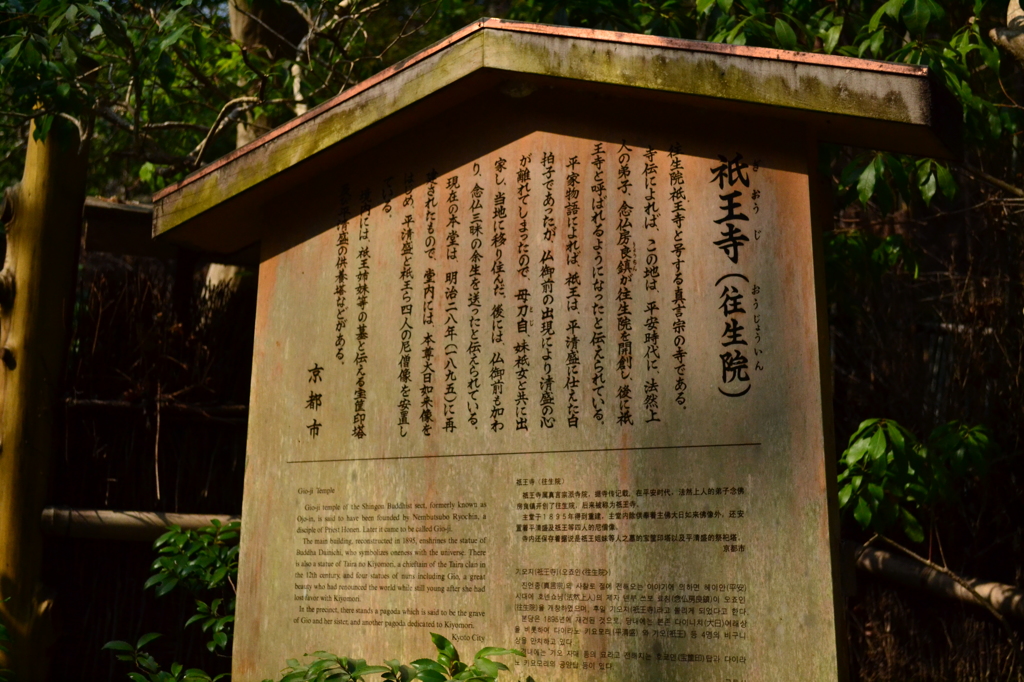 祇王寺(往生院)
ぎおうじ
おうじょういん
往生院祇王寺と号する真言宗の寺である。
寺伝によれば、この地は、平安時代に、法然上
人の弟子、念仏房良鎮が往生院を開創し、後に祇
王寺と呼ばれるようになったと伝えられている。
平家物語によれば、祇王は、平清盛に仕えた白
拍子であったが、仏御前の出現により清盛の心
が離れてしまったので、母刀自、妹祇女と共に出
家し、当地に移り住んだ。後には、仏御前も加わ
り、念仏三昧の余生を送ったと伝えられている。
現在の本堂は、明治二八年(一八九五)に再
建されたもので、堂内には、本尊大日如来像を
はじめ、平清盛と祇王ら四人の尼僧像を安置し
ている。
には、祇王姉妹等の墓と伝える宝筐印塔
清盛の供養塔などがある。
京都市
Gio-ji Temple
Gio-ji temple of the Shingon Buddhist sect, formerly known as
Ojo-in, is said to have been founded by Nembutsubo Ryochin, a
disciple of Priest Honen. Later it came to be called Gio-ji.
The main building, reconstructed in 1895, enshrines the statue of
Buddha Dainichi, who symbolizes oneness with the universe. There
is also a statue of Taira no Kiyomori, a chieftain of the Taira clan in
the 12th century, and four statues of nuns including Gio, a great
beauty who had renounced the world while still young after she had
lost favor with Kiyomori.
In the precinct, there stands a pagoda which is said to be the grave
of Gio and her sister, and another pagoda dedicated to Kiyomori.
Kyoto City
祇王寺(往生院)
祇王寺属真言宗派寺院。据寺传记载，在平安时代，法然上人的弟子念佛
房良镇开创了往生院，后来被称为祇王寺。
主堂于1895年得到重建。主堂内除供奉着主佛大日如来佛像外，还安
置着平清盛及祇王等四人的尼僧像。
寺内还保存着据说是祇王姐妹等人之墓的宝箧印塔以及平清盛的祭祀塔。
京都市
기오지(祇王寺)(오죠인(往生院))